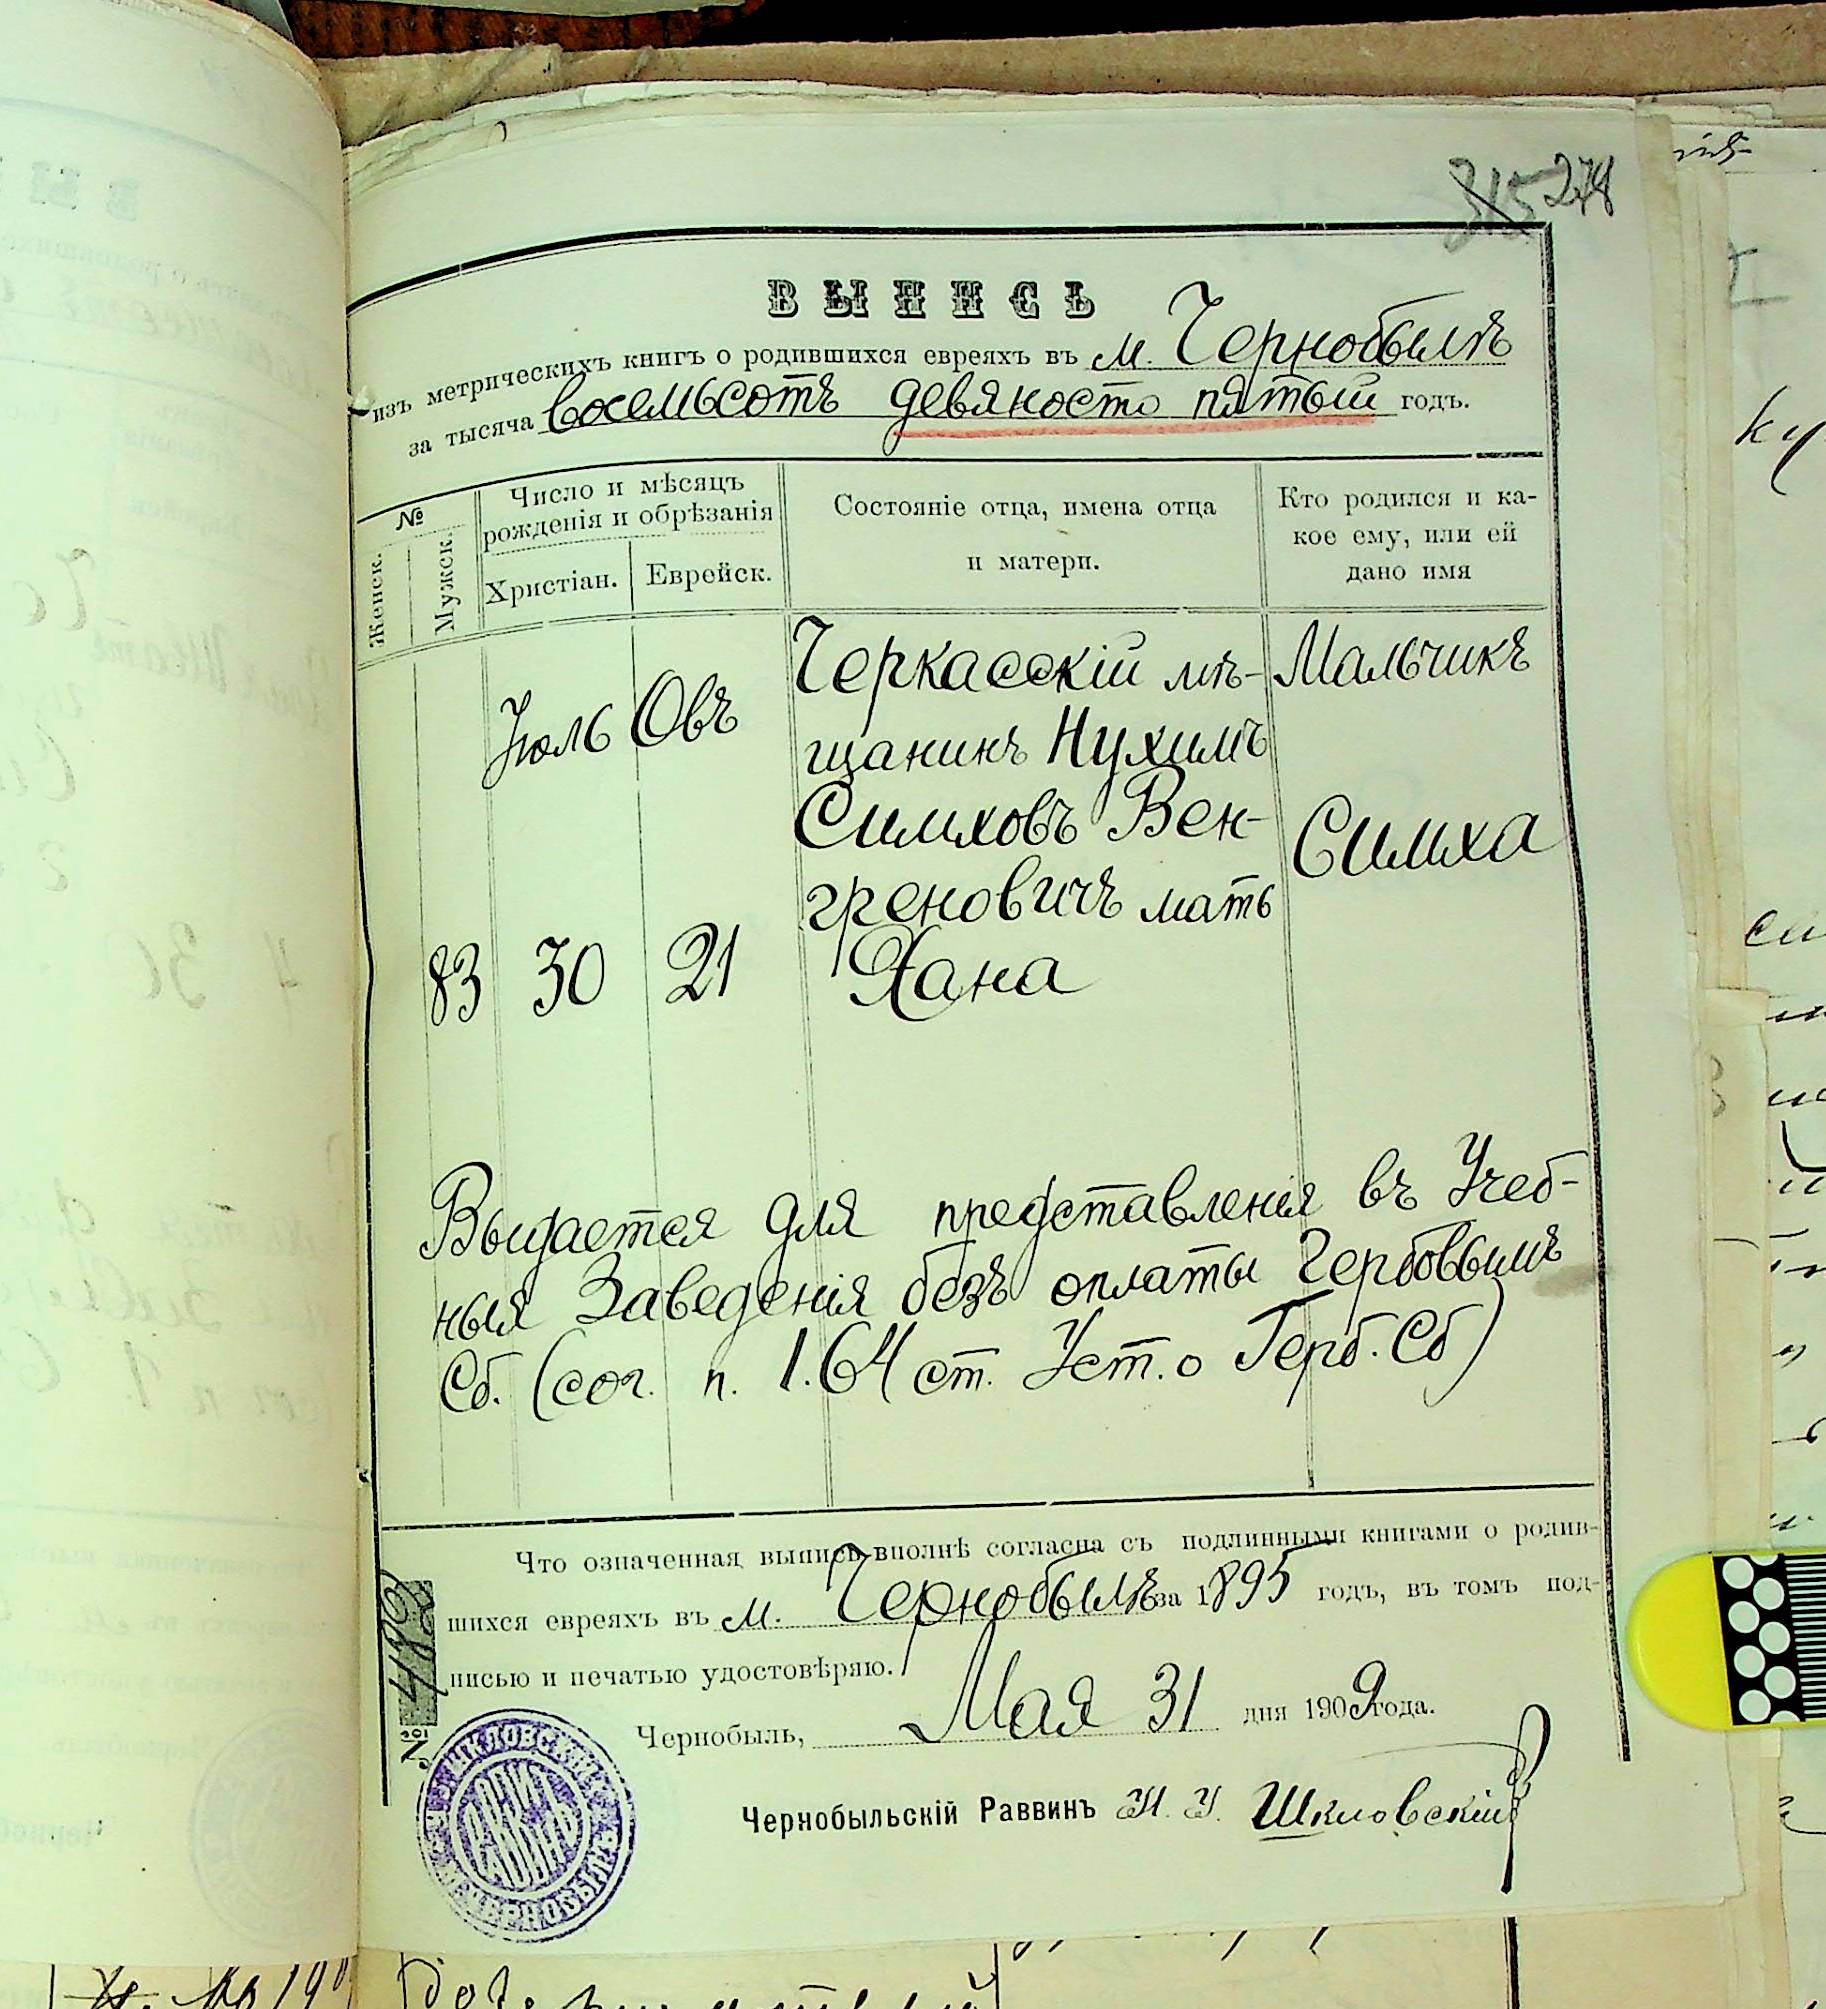 315 278
ВЫПИСЬ
изъ метрическихъ книгъ о родившихся евреяхъ въ м. Чернобылѣ
за тысяча восемьсотъ девяносто пятый годъ.
№
Женск.
Мужск.
Число и мѣсяцъ
рожденія и обрѣзанія
Христіан.
Еврейск.
Состояніе отца, имена отца
и матери.
Кто родился и ка-
кое ему, или ей
дано имя
83
Іюль
30
Овъ
21
Черкасскій мѣ-
щанинъ Нухимъ
Симховъ Вен-
греновичъ мать
Хана
Мальчикъ
Симха
Выдается для представленія въ Учеб-
ныя Заведенія безъ оплаты Гербовымъ
Сб. (сог. п. 1. 64 ст. Уст. о Герб. Сб)
Что означенная выпись вполнѣ согласна съ подлинными книгами о родив-
шихся евреяхъ въ м. Чернобылѣ за 1895 годъ, въ томъ под-
писью и печатью удостовѣряю.
№ 483
Чернобыль, Мая 31 дня 1909 года.
Чернобыльскій Раввинъ И. У. Шкловскій